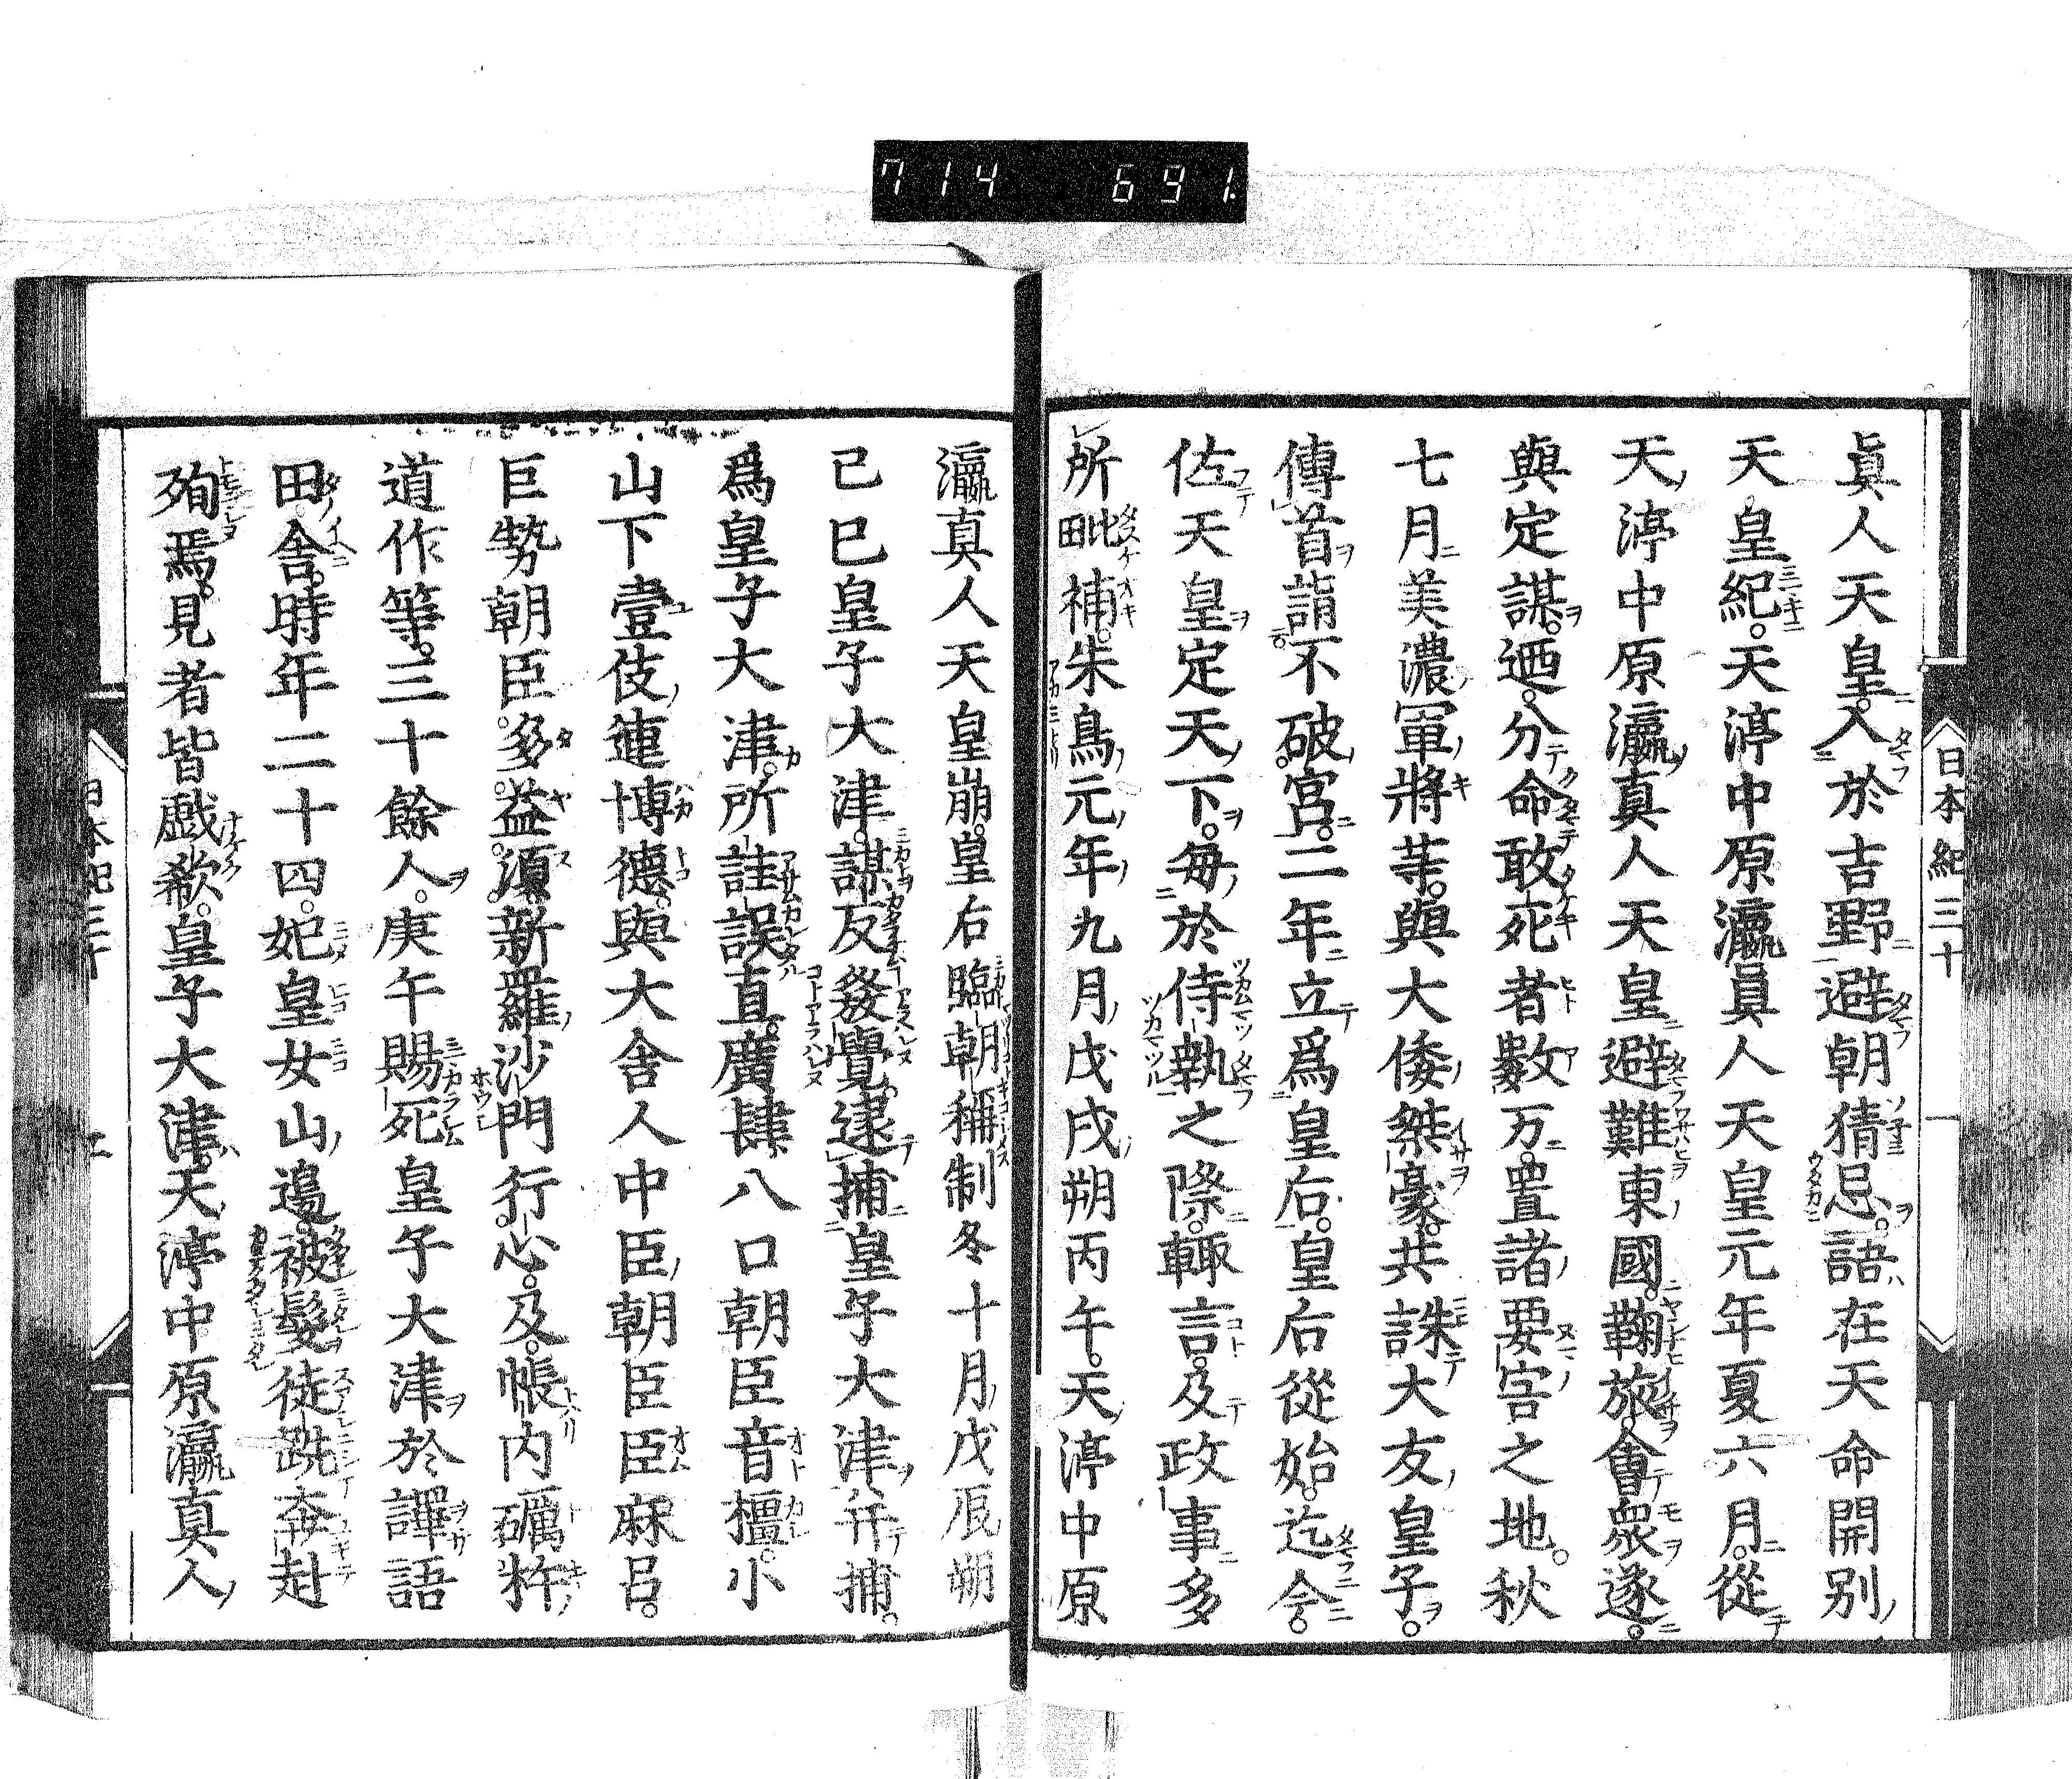 714 691.
日本紀三十 一
眞人天皇入於吉野避朝猜忌語在天命開別
天皇紀天渟中原瀛眞人天皇元年夏六月從
天渟中原瀛真人天皇避難東國鞠旅會衆遂
與定謀迺分命敢死者數万置諸要害之地秋
七月美濃軍將等與大倭桀豪共誅大友皇子
傳首詣不破宮二年立爲皇后皇后從始迄今
佐天皇定天下毎於侍執之際輙言及政事多
所毗補朱鳥元年九月戊戌朔丙午天渟中原
瀛真人天皇崩皇后臨朝稱制冬十月戊辰朔
己巳皇子大津謀反發覺逮捕皇子大津并捕
爲皇子大津所詿誤直廣肆八口朝臣音橿小
山下壹伎連博德與大舍人中臣朝臣臣麻呂
巨勢朝臣多益須新羅沙門行心及帳內礪杵
道作等三十餘人庚午賜死皇子大津於譯語
田舍時年二十四妃皇女山邉被髮徒跣奔赴
殉焉見者皆戯欷皇子大津天渟中原瀛真人
日本紀三十